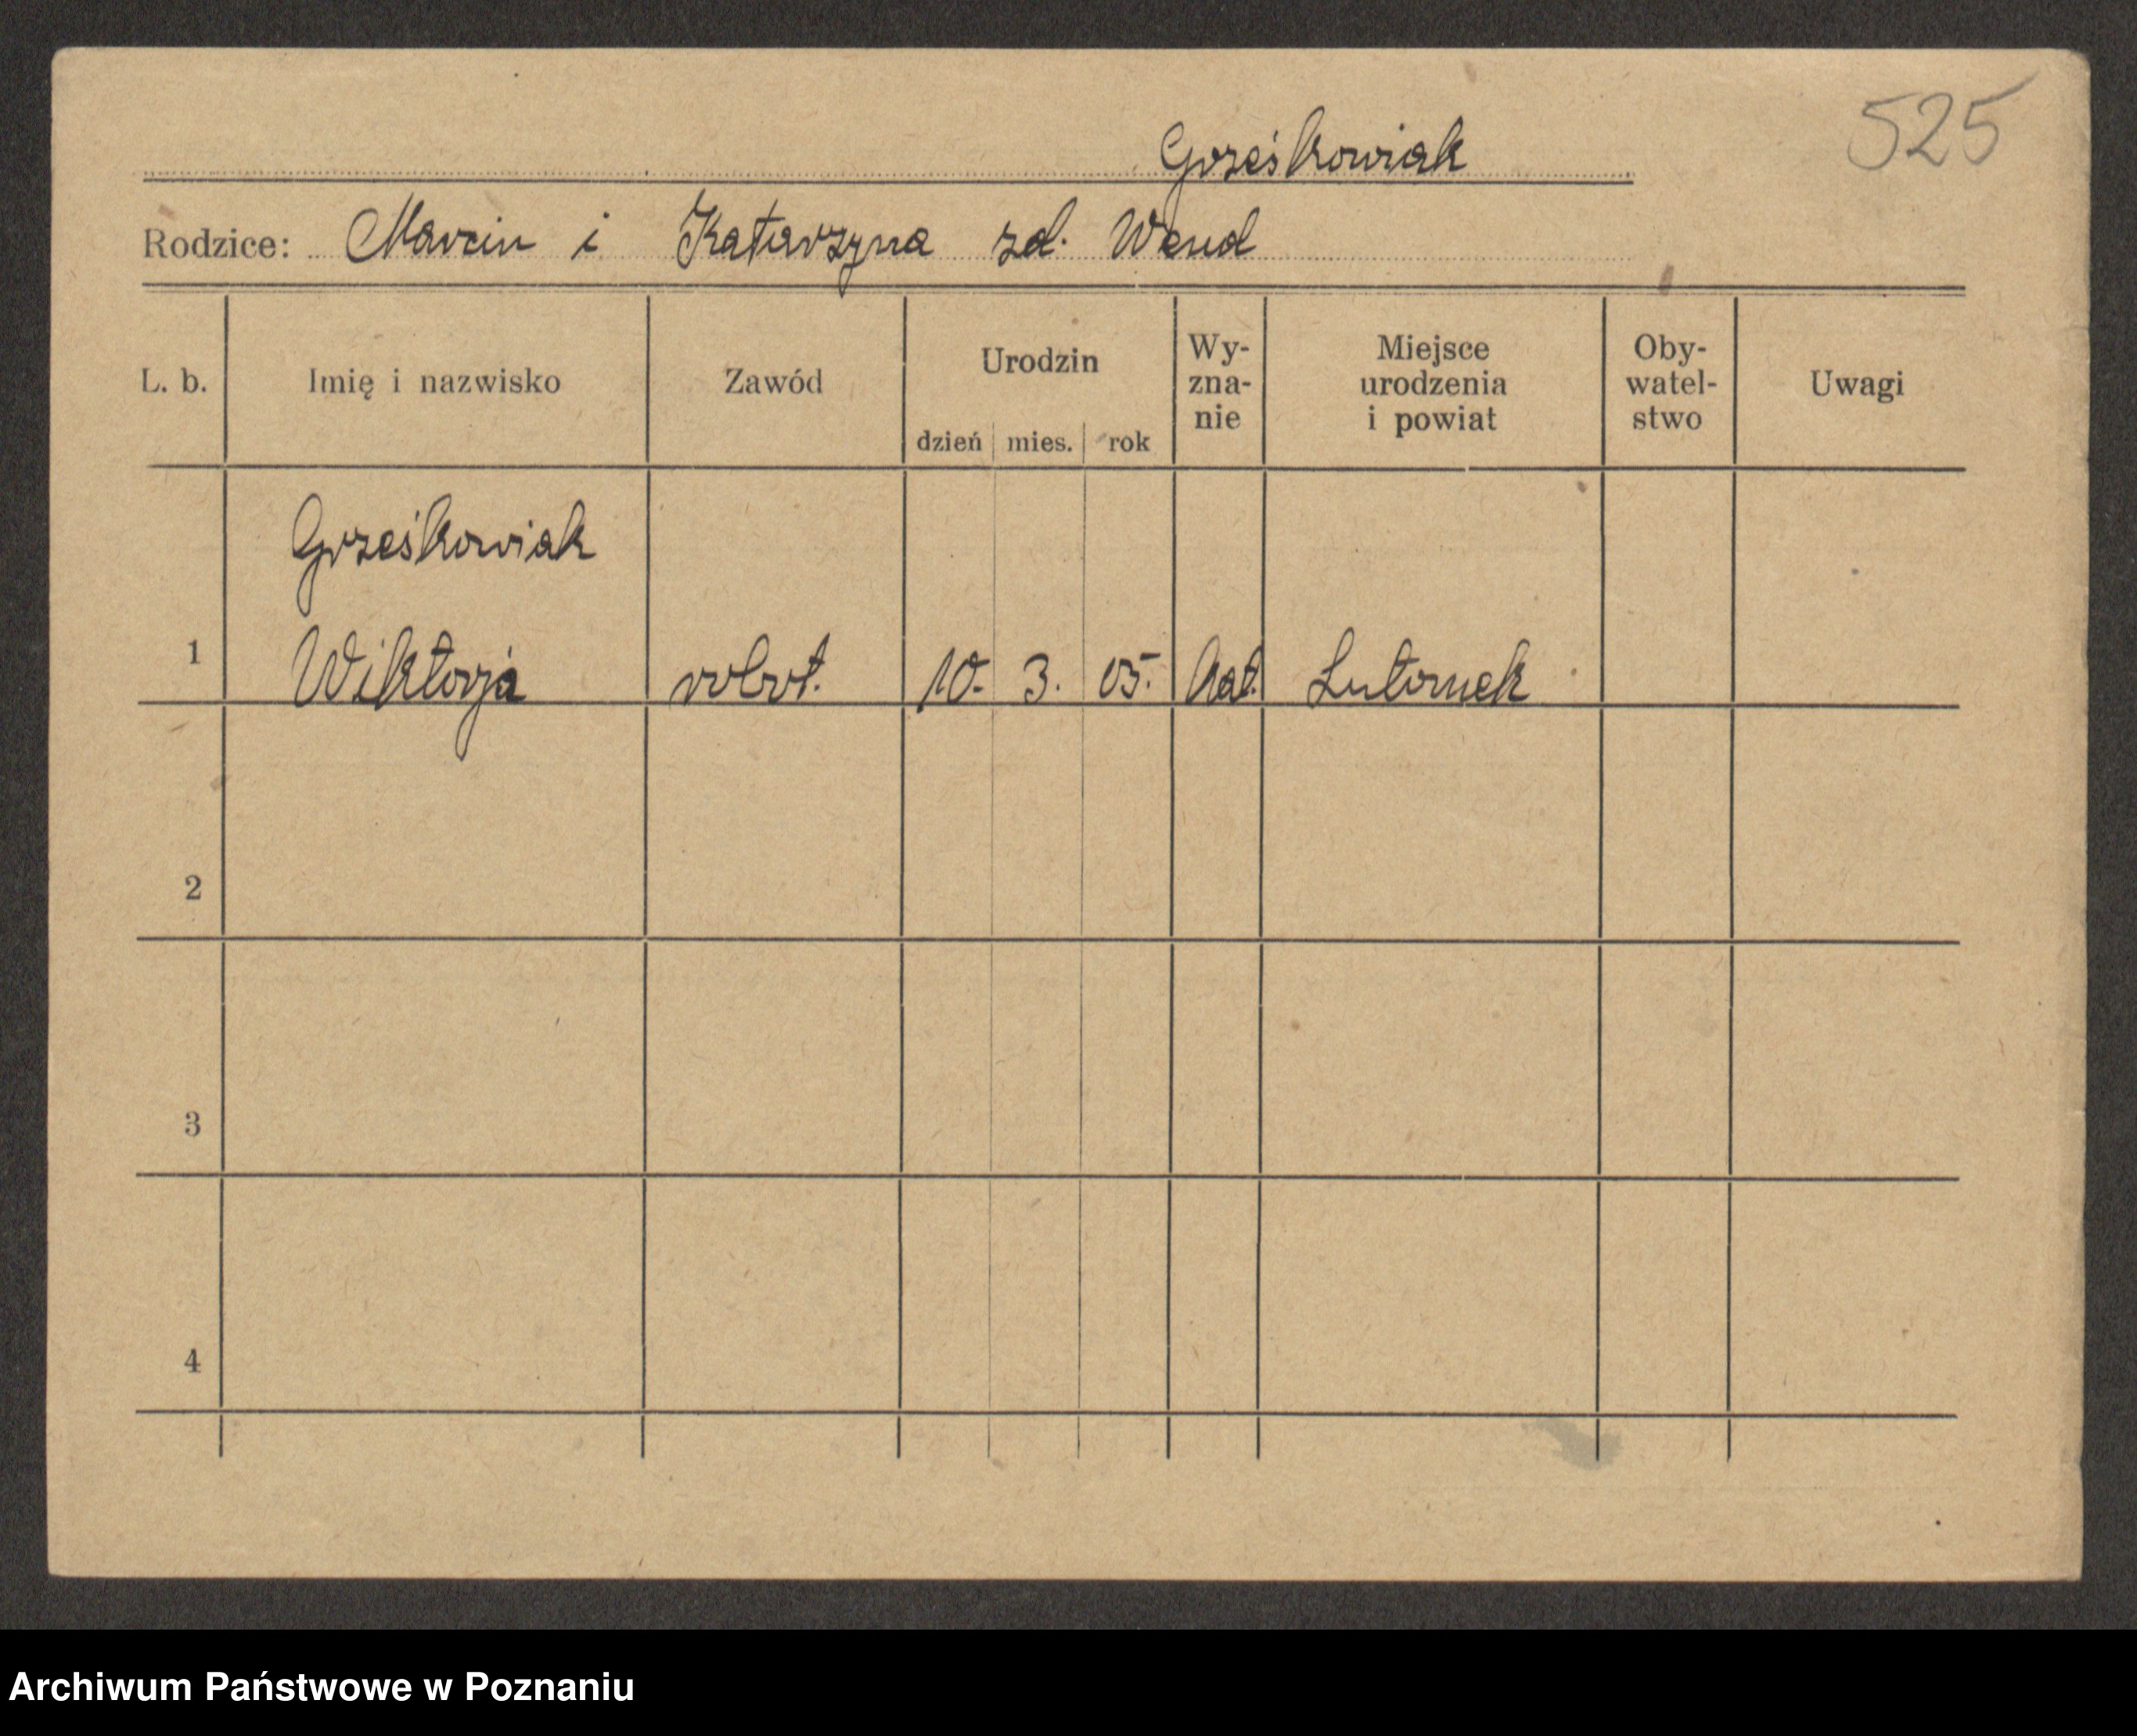 525
Grześkowiak
Rodzice: Marcin i Katarzyna zd. Wend
L. b.
Imię i nazwisko
Zawód
Urodzin
dzień mies. rok
Wy-
zna-
nie
Miejsce
urodzenia
i powiat
Oby-
watel-
stwo
Uwagi
Grześkowiak
1 Wiktorja robot. 10. 3. 05. kat. Lutomek
2
3
4
Archiwum Państwowe w Poznaniu